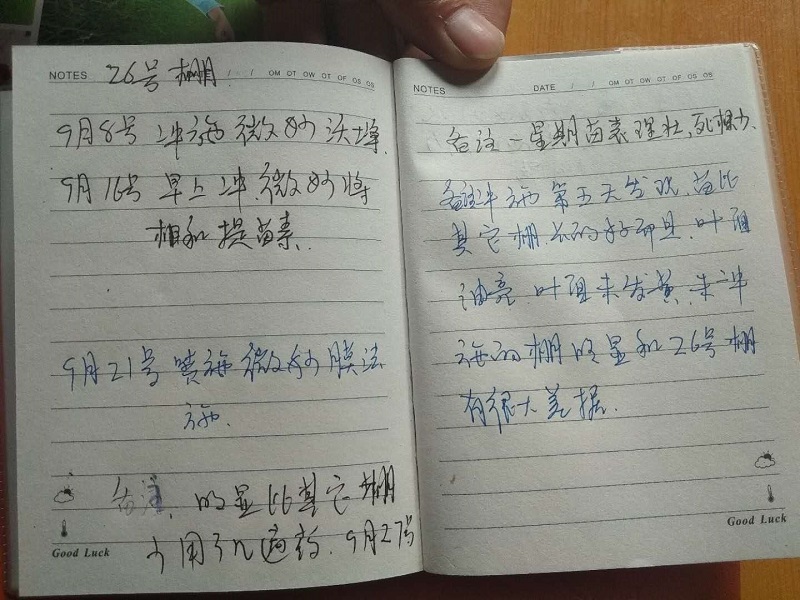 NOTES 26号棚 / / OM OT OW OT OF OS OS
9月8号 冲施微妙沃埴
9月16号 早上冲.微妙将
相和提苗素.
9月21号喷施微妙膜法
施.
备注. 明显比其它棚
少用了几遍药. 9月27号
Good Luck
NOTES DATE / / OM OT OW OT OF OS OS
备注一星期苗表理壮,死棵少.
备注冲施第五天发现,苗比
其它棚.长的好而且.叶阻
油亮.叶阻未发黄.未冲
施的棚明显和26号棚
有很大差据.
Good Luck